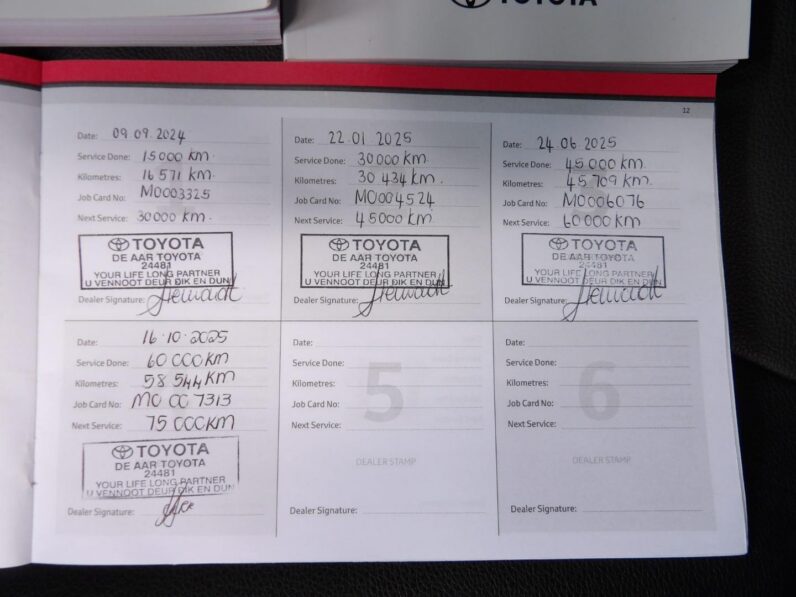 TOYOTA
12
Date: 09.09.2024
Service Done: 15000 km
Kilometres: 16 571 km.
Job Card No: M0003325
Next Service: 30000 km.
TOYOTA
DE AAR TOYOTA
24481
YOUR LIFE LONG PARTNER
U VENNOOT DEUR DIK EN DUN
Dealer Signature:
Date: 22.01 2025
Service Done: 30000 km.
Kilometres: 30 434 km.
Job Card No: M0004524
Next Service: 45000 km.
TOYOTA
DE AAR TOYOTA
24481
YOUR LIFE LONG PARTNER
U VENNOOT DEUR DIK EN DUN
Dealer Signature:
Date: 24 06 2025
Service Done: 45 000 km.
Kilometres: 45 709 km.
Job Card No: M0006076
Next Service: 60 000 km
TOYOTA
DE AAR TOYOTA
24481
YOUR LIFE LONG PARTNER
U VENNOOT DEUR DIK EN DUN
Dealer Signature:
Date: 16.10.2025
Service Done: 60 000 KM
Kilometres: 58 544 KM
Job Card No: M0 00 7313
Next Service: 75 000 KM
TOYOTA
DE AAR TOYOTA
24481
YOUR LIFE LONG PARTNER
U VENNOOT DEUR DIK EN DUN
Dealer Signature:
Date:
Service Done:
Kilometres:
Job Card No:
Next Service:
5
DEALER STAMP
Dealer Signature:
Date:
Service Done:
Kilometres:
Job Card No:
Next Service:
6
DEALER STAMP
Dealer Signature: